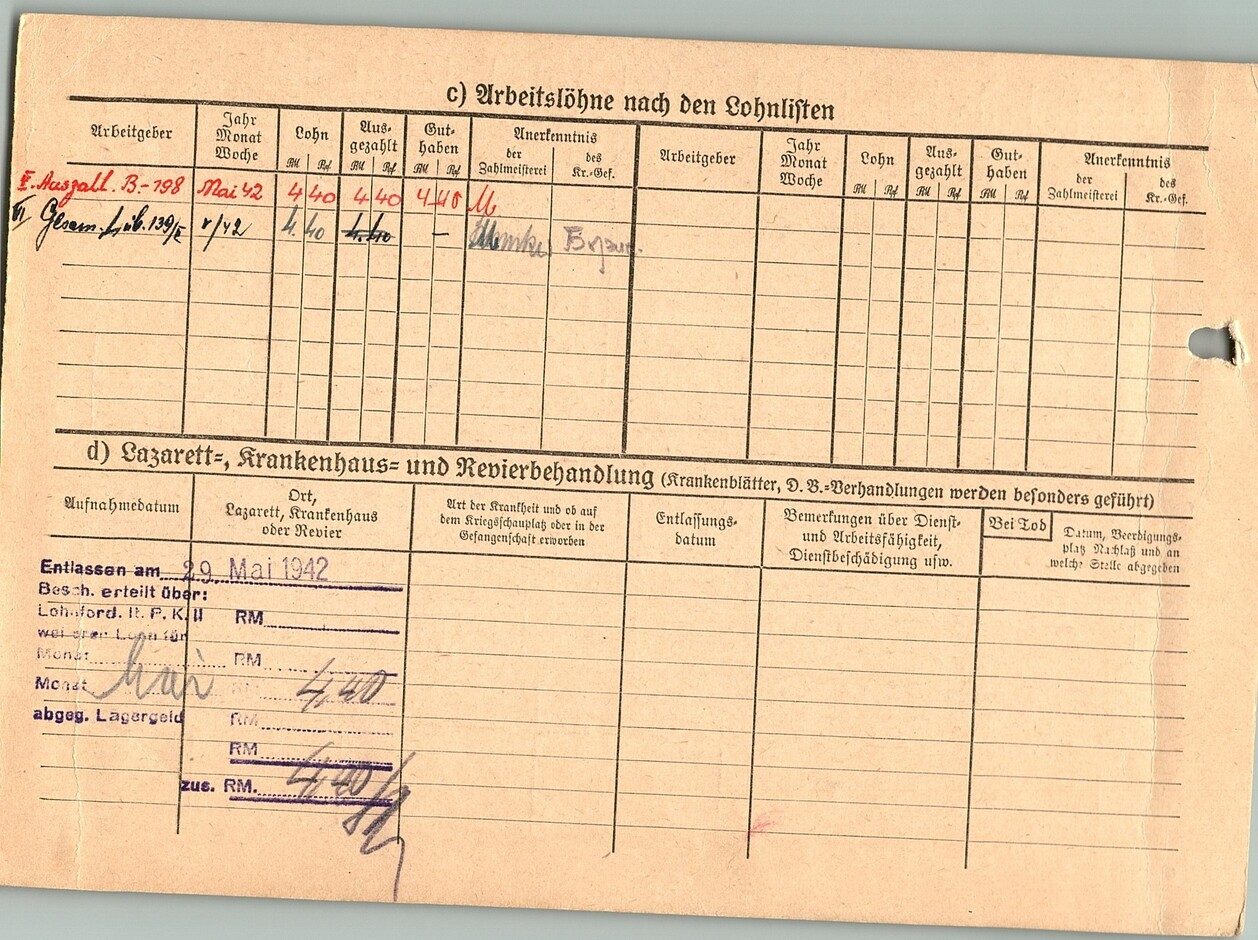 c) Arbeitslöhne nach den Lohnlisten
Arbeitgeber
Jahr
Monat
Woche
Lohn
RM Rpf
Aus-
gezahlt
RM Rpf
Gut-
haben
RM Rpf
Anerkenntnis
der
Zahlmeisterei
des
Kr.-Gef.
Arbeitgeber
Jahr
Monat
Woche
Lohn
RM Rpf
Aus-
gezahlt
RM Rpf
Gut-
haben
RM Rpf
Anerkenntnis
der
Zahlmeisterei
des
Kr.-Gef.
Auszahl. B.-198 Mai 42 4 40 4 40 4 40 M
139/E V/42 4. 40 4.40 –
d) Lazarett-, Krankenhaus- und Revierbehandlung (Krankenblätter, D. B.-Verhandlungen werden besonders geführt)
Aufnahmedatum
Ort,
Lazarett, Krankenhaus
oder Revier
Art der Krankheit und ob auf
dem Kriegsschauplatz oder in der
Gefangenschaft erworben
Entlassungs-
datum
Bemerkungen über Dienst-
und Arbeitsfähigkeit,
Dienstbeschädigung usw.
Bei Tod
Datum, Beerdigungs-
platz Nachlaß und an
welche Stelle abgegeben
Entlassen am 29. Mai 1942
Besch. erteilt über:
Lohnford. lt. P. K. II RM
weiterer Lohn für
Monat RM
Monat Mai RM 4,40
abgeg. Lagergeld RM
RM
zus. RM. 4,40